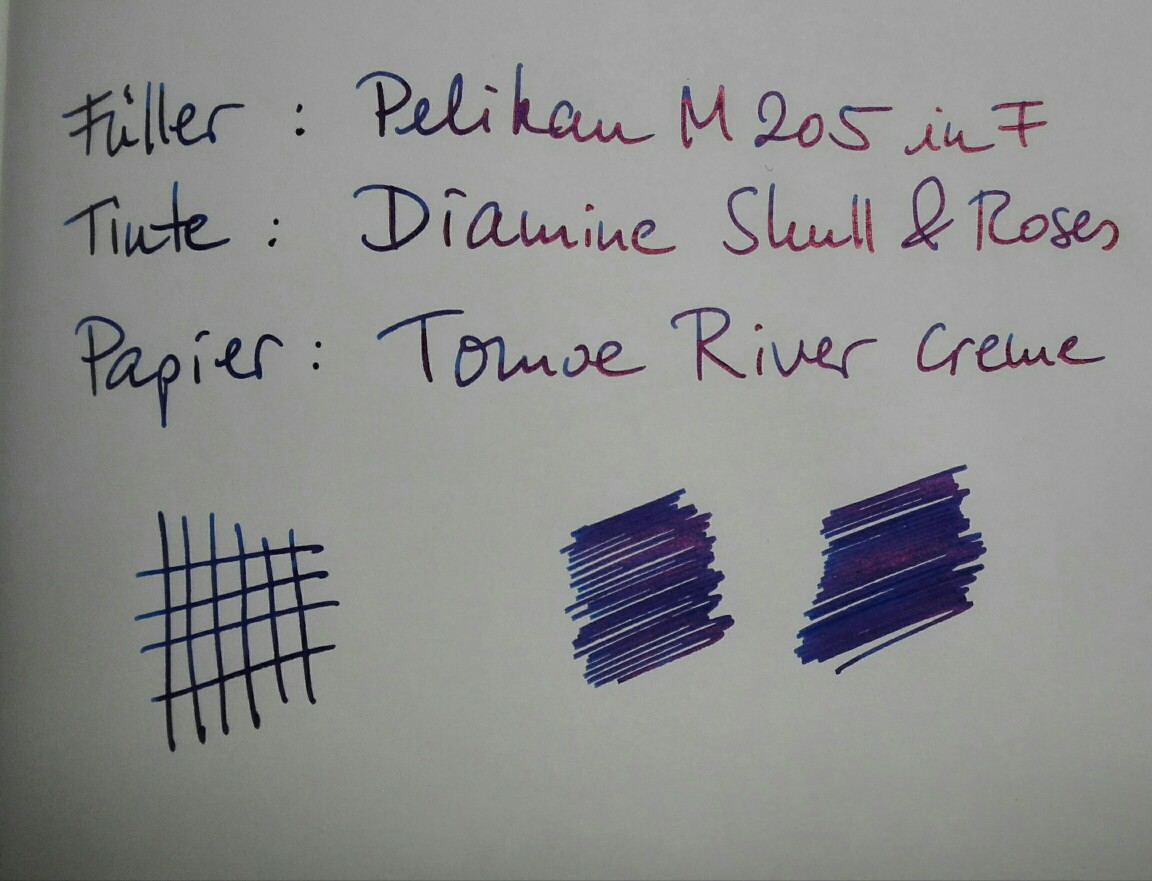 Füller : Pelikan M205 in F
Tinte : Diamine Skull & Roses
Papier : Tomoe River Creme